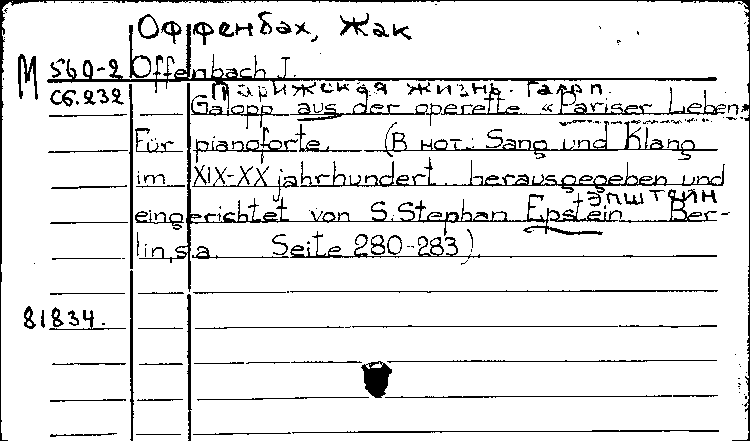 Оффенбах, Жак
М 560-2 Offenbach J.
Парижская жизнь. Галоп.
Сб.232 Galopp aus der operette «Pariser Leben»
Für pianoforte. (В нот.: Sang und Klang
im XIX-XX jahrhundert. herausgegeben und
Эпштейн
eingerichtet von S.Stephan Epstein. Ber-
lin, s.a. Seite 280-283).
81834.